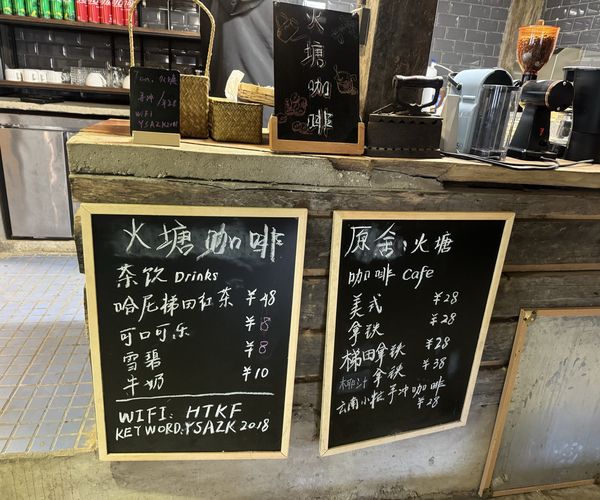 火塘
手冲/¥28
WIFI
YSAZK2018
火塘咖啡
火塘咖啡
茶饮 Drinks
哈尼梯田红茶 ¥48
可口可乐 ¥8
雪碧 ¥8
牛奶 ¥10
WIFI: HTKF
KEYWORD:YSAZK2018
原舍·火塘
咖啡 Cafe
美式 ¥28
拿铁 ¥28
梯田拿铁 ¥28
椰汁拿铁 ¥38
云南小粒手冲咖啡
¥28